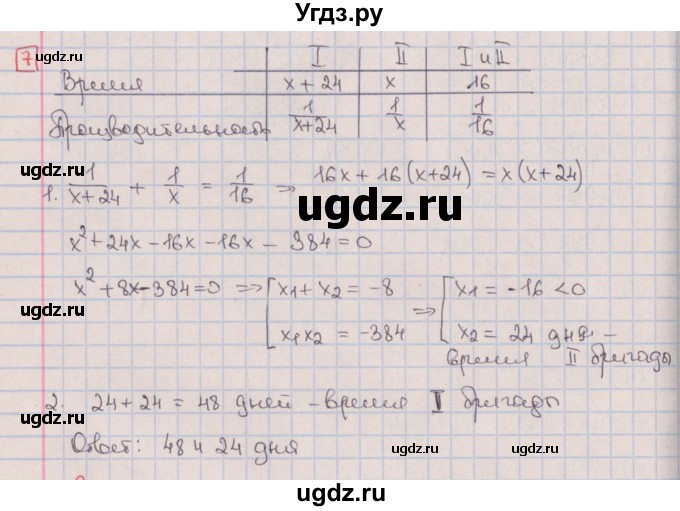 Угдз.ру
ugdz.ru ugdz.ru ugdz.ru
7 I II I и II
Время x + 24 x 16
Производительность 1/(x+24) 1/x 1/16
ugdz.ru ugdz.ru
1. 1/(x+24) + 1/x = 1/16 => 16x + 16(x+24) = x(x+24)
ugdz.ru
x² + 24x - 16x - 16x - 384 = 0
x² + 8x - 384 = 0 => [ x1 + x2 = -8 => [ x1 = -16 < 0
x1x2 = -384 x2 = 24 дня -
ugdz.ru время II бригады
2. 24 + 24 = 48 дней - время I бригады
Ответ: 48 и 24 дня
ugdz.ru ugdz.ru ugdz.ru
ugdz.ru